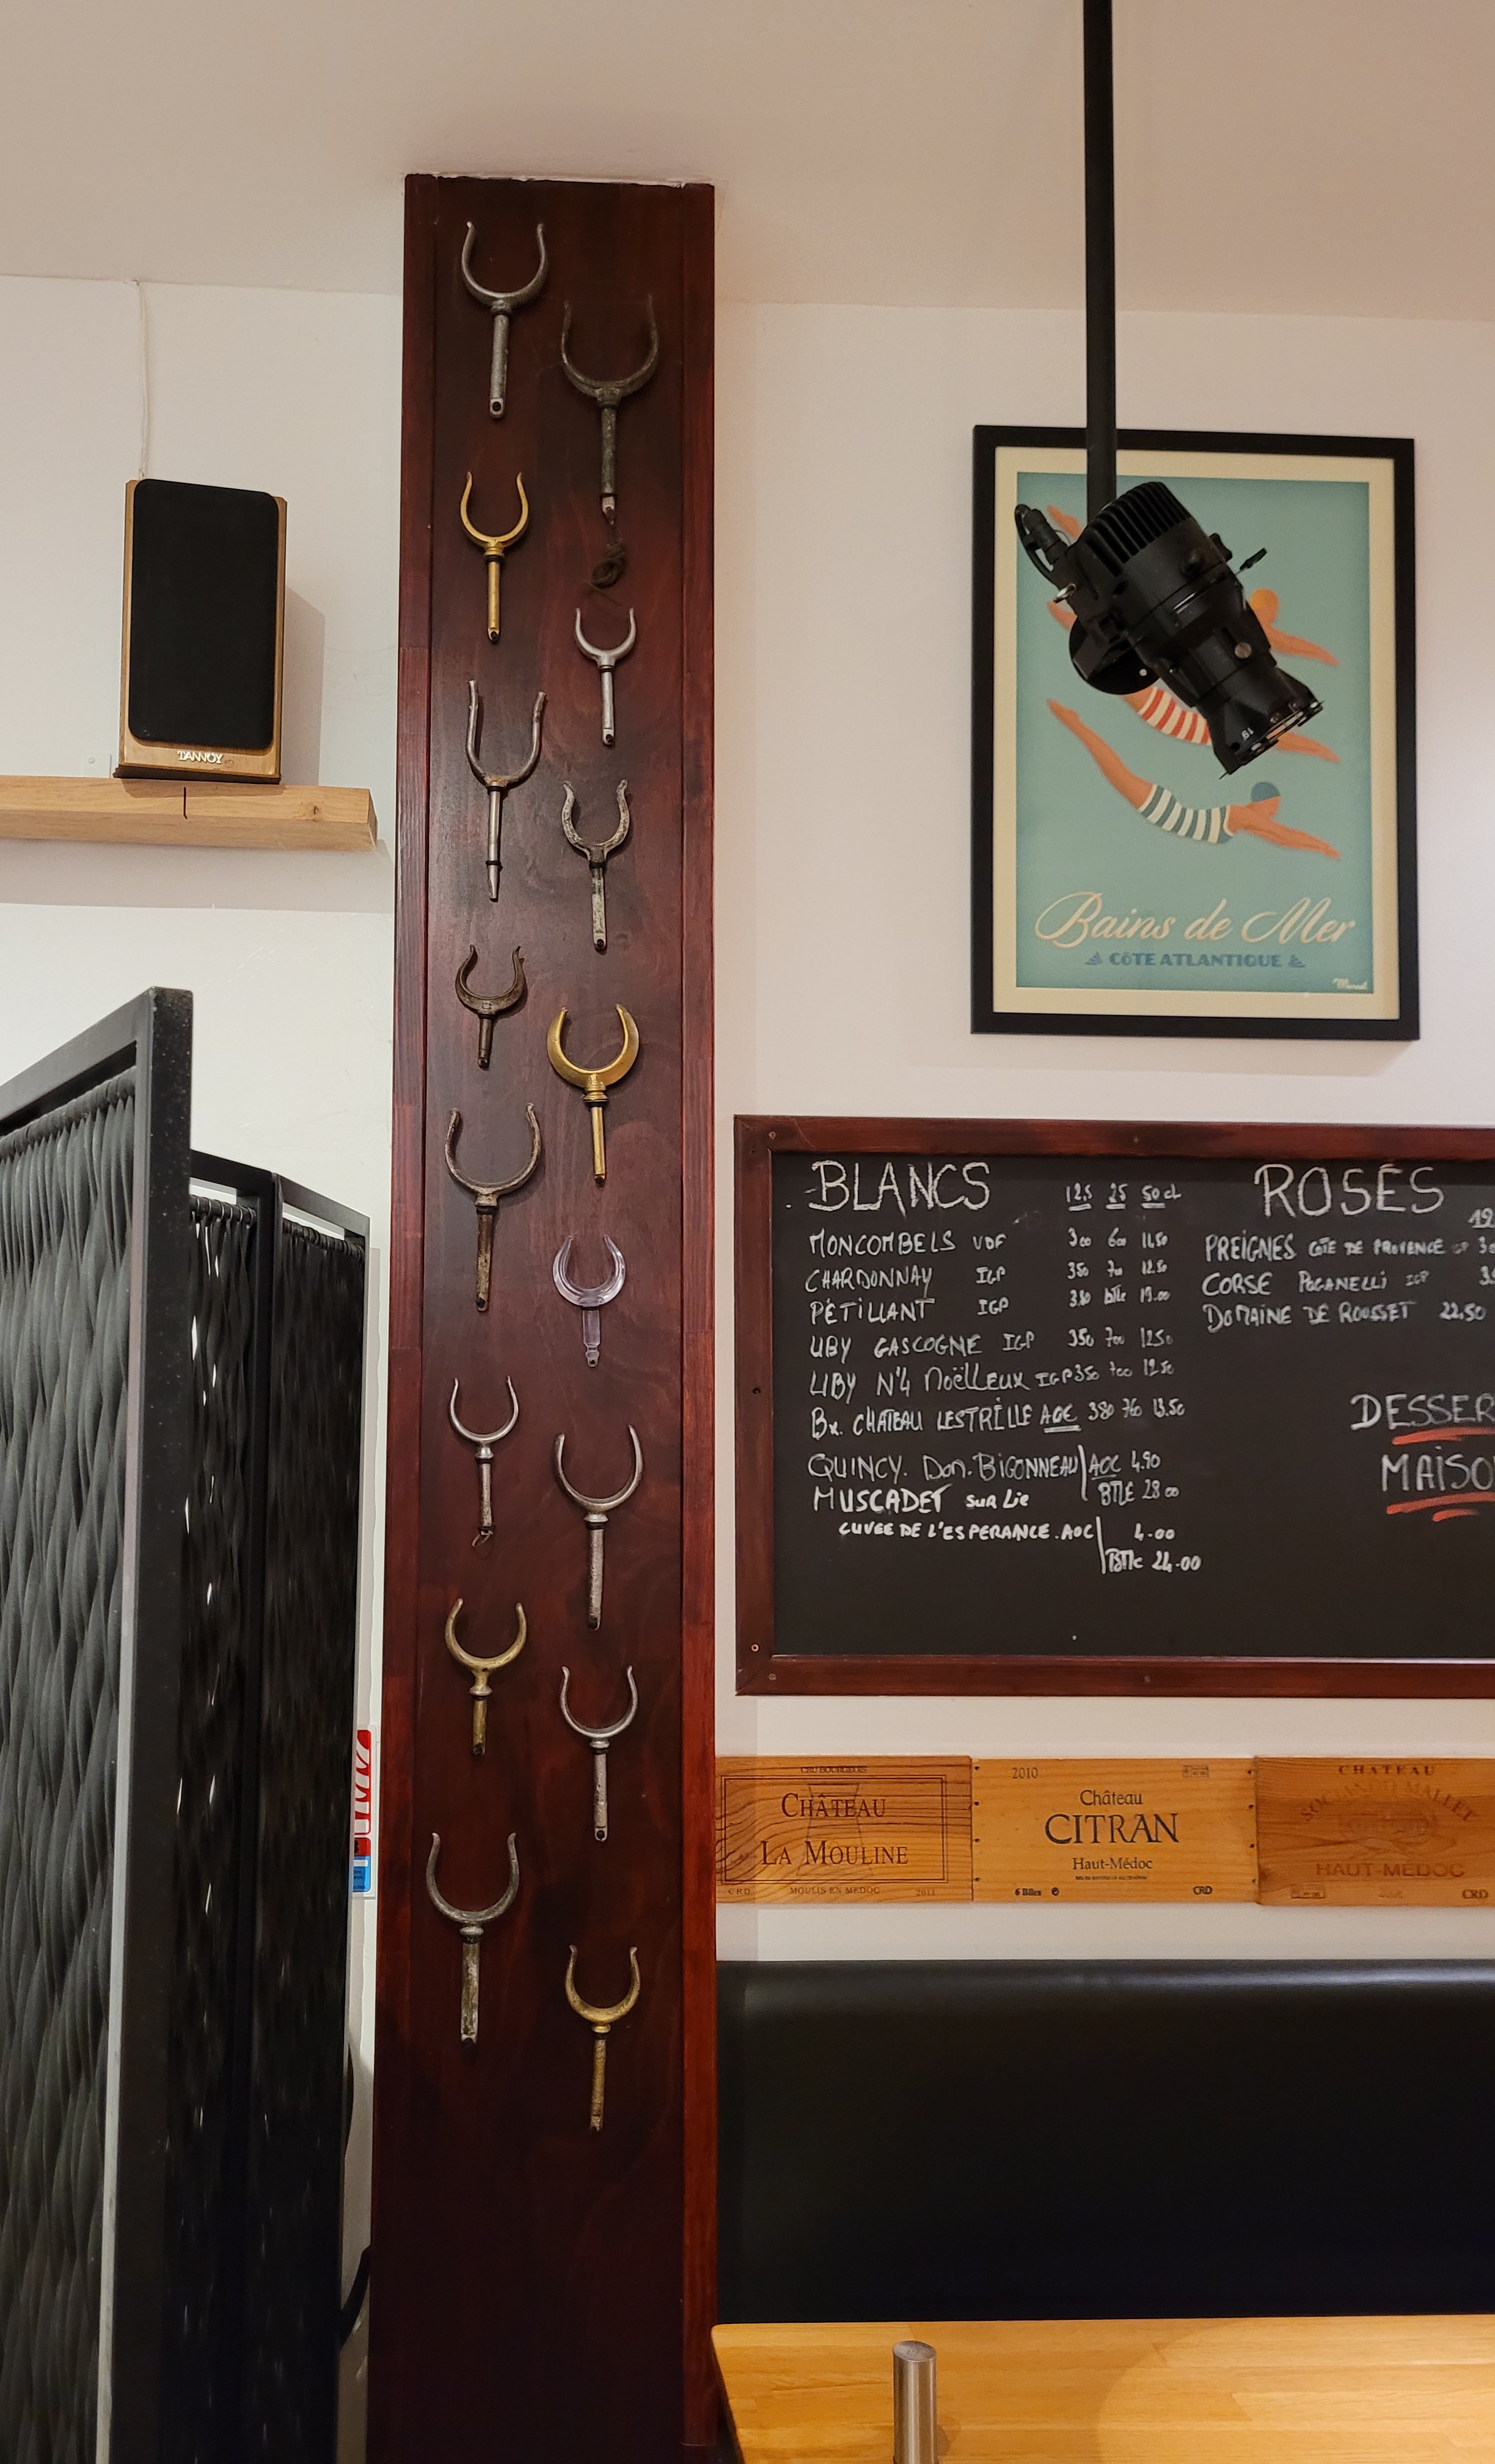 TANNOY
Bains de Mer
CÔTE ATLANTIQUE
BLANCS 12.5 25 50 cL
MONCOMBELS VDF 3 00 6 00 11.50
CHARDONNAY IGP 3 50 7 00 12.50
PÉTILLANT IGP 3.80 BtLe 19.00
UBY GASCOGNE IGP 3 50 7 00 12 50
UBY N°4 MOËLLEUX IGP 3 50 7 00 12 50
Bx. CHATEAU LESTRILLE AOC 3 80 7 60 13.50
QUINCY. Dom. BIGONNEAU AOC 4.90
BTLE 28 00
MUSCADET SUR Lie
CUVEE DE L'ESPERANCE. AOC 4.00
BTlle 24.00
ROSÉS
PREIGNES CÔTE DE PROVENCE
CORSE PAGANELLI IGP
DOMAINE DE ROUSSET 22.50
DESSER
MAISO
CRU BOURGEOIS
CHÂTEAU
LA MOULINE
CRD MOULIS EN MEDOC 2011
2010
Château
CITRAN
Haut-Médoc
6 Btles CRD
CHATEAU
SOCIANDO MALLET
HAUT-MÉDOC
CRD